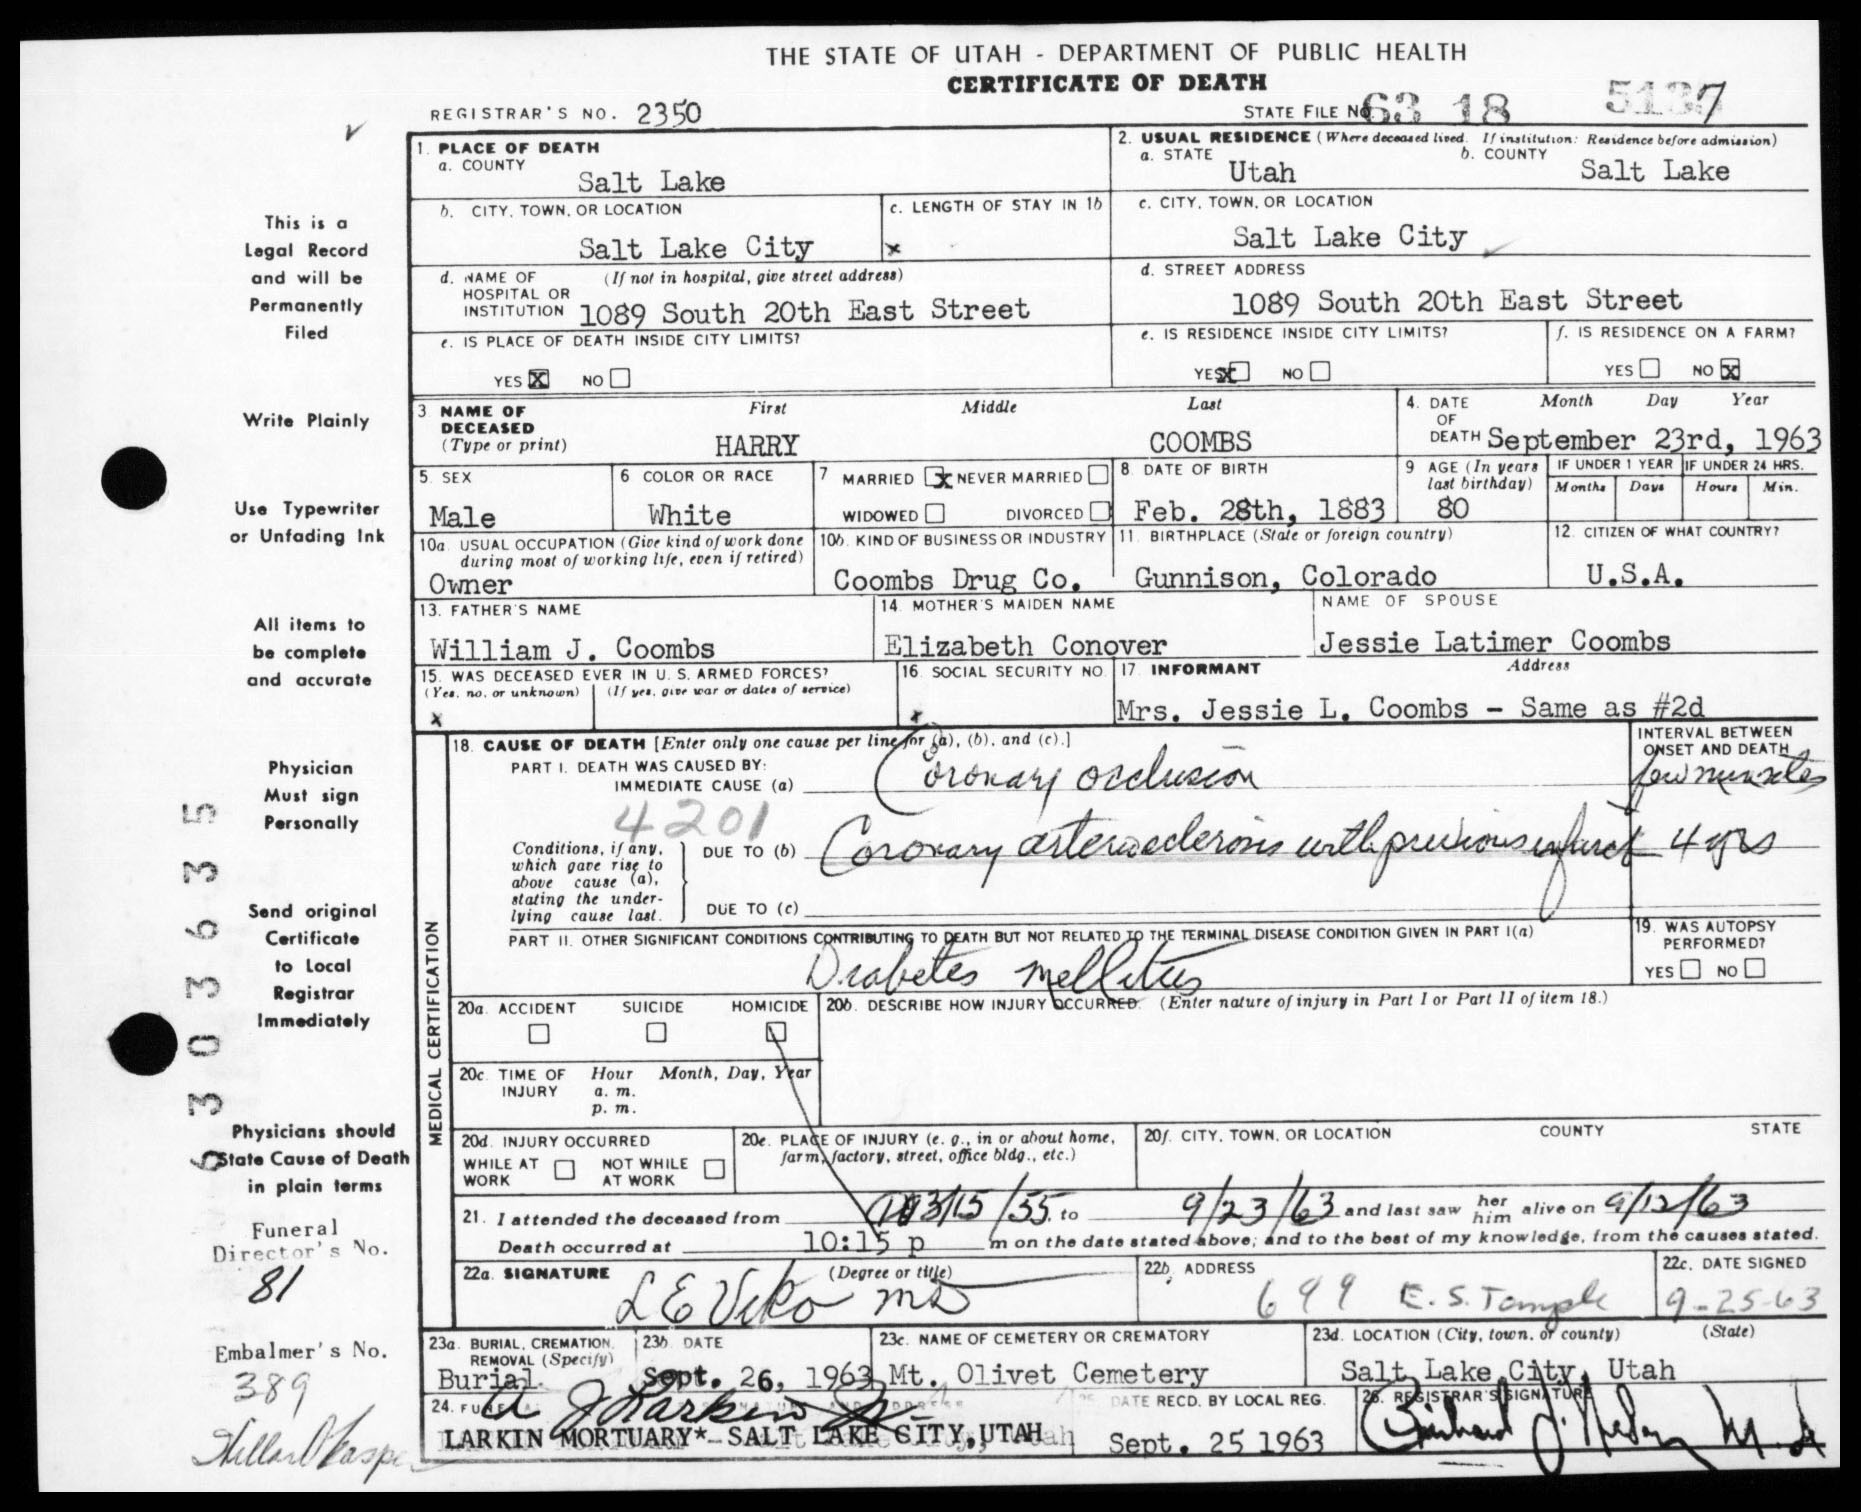 THE STATE OF UTAH - DEPARTMENT OF PUBLIC HEALTH
CERTIFICATE OF DEATH
REGISTRAR'S NO. 2350
STATE FILE NO. 63 18 5137
This is a
Legal Record
and will be
Permanently
Filed
Write Plainly
Use Typewriter
or Unfading Ink
All items to
be complete
and accurate
Physician
Must sign
Personally
Send original
Certificate
to Local
Registrar
Immediately
Physicians should
State Cause of Death
in plain terms
Funeral
Director's No.
81
Embalmer's No.
389
6303635
1. PLACE OF DEATH
a. COUNTY
Salt Lake
2. USUAL RESIDENCE (Where deceased lived. If institution: Residence before admission)
a. STATE Utah
b. COUNTY Salt Lake
b. CITY, TOWN, OR LOCATION
Salt Lake City
c. LENGTH OF STAY IN 1b
x
c. CITY, TOWN, OR LOCATION
Salt Lake City
d. NAME OF HOSPITAL OR INSTITUTION (If not in hospital, give street address)
1089 South 20th East Street
d. STREET ADDRESS
1089 South 20th East Street
e. IS PLACE OF DEATH INSIDE CITY LIMITS?
YES X NO
e. IS RESIDENCE INSIDE CITY LIMITS?
YES X NO
f. IS RESIDENCE ON A FARM?
YES NO X
3. NAME OF DECEASED (Type or print)
First Middle Last
HARRY COOMBS
4. DATE OF DEATH Month Day Year
September 23rd, 1963
5. SEX
Male
6 COLOR OR RACE
White
7 MARRIED X NEVER MARRIED
WIDOWED DIVORCED
8 DATE OF BIRTH
Feb. 28th, 1883
9 AGE (In years last birthday)
80
IF UNDER 1 YEAR
Months Days
IF UNDER 24 HRS.
Hours Min.
10a. USUAL OCCUPATION (Give kind of work done during most of working life, even if retired)
Owner
10b. KIND OF BUSINESS OR INDUSTRY
Coombs Drug Co.
11. BIRTHPLACE (State or foreign country)
Gunnison, Colorado
12. CITIZEN OF WHAT COUNTRY?
U.S.A.
13. FATHER'S NAME
William J. Coombs
14. MOTHER'S MAIDEN NAME
Elizabeth Conover
NAME OF SPOUSE
Jessie Latimer Coombs
15. WAS DECEASED EVER IN U. S. ARMED FORCES?
(Yes, no, or unknown) (If yes, give war or dates of service)
x
16. SOCIAL SECURITY NO.
x
17. INFORMANT Address
Mrs. Jessie L. Coombs - Same as #2d
MEDICAL CERTIFICATION
18. CAUSE OF DEATH [Enter only one cause per line for (a), (b), and (c).]
PART I. DEATH WAS CAUSED BY:
IMMEDIATE CAUSE (a) Coronary occlusion
INTERVAL BETWEEN ONSET AND DEATH
few minutes
4201
Conditions, if any, which gave rise to above cause (a), stating the underlying cause last.
DUE TO (b) Coronary arteriosclerosis with previous infarct 4 yrs
DUE TO (c)
PART II. OTHER SIGNIFICANT CONDITIONS CONTRIBUTING TO DEATH BUT NOT RELATED TO THE TERMINAL DISEASE CONDITION GIVEN IN PART I(a)
Diabetes mellitus
19. WAS AUTOPSY PERFORMED?
YES NO
20a. ACCIDENT SUICIDE HOMICIDE
20b. DESCRIBE HOW INJURY OCCURRED. (Enter nature of injury in Part I or Part II of item 18.)
20c. TIME OF INJURY Hour Month, Day, Year
a. m.
p. m.
20d. INJURY OCCURRED
WHILE AT WORK NOT WHILE AT WORK
20e. PLACE OF INJURY (e. g., in or about home, farm, factory, street, office bldg., etc.)
20f. CITY, TOWN, OR LOCATION COUNTY STATE
21. I attended the deceased from 3/15/55 to 9/23/63 and last saw her him alive on 9/12/63
Death occurred at 10:15 p m on the date stated above; and to the best of my knowledge, from the causes stated.
22a. SIGNATURE (Degree or title)
L E Viko MD
22b. ADDRESS
699 E. S. Temple
22c. DATE SIGNED
9-25-63
23a. BURIAL, CREMATION, REMOVAL (Specify)
Burial
23b. DATE
Sept. 26, 1963
23c. NAME OF CEMETERY OR CREMATORY
Mt. Olivet Cemetery
23d. LOCATION (City, town, or county) (State)
Salt Lake City, Utah
24.
LARKIN MORTUARY* SALT LAKE CITY, UTAH
25. DATE RECD. BY LOCAL REG.
Sept. 25 1963
26. REGISTRAR'S SIGNATURE